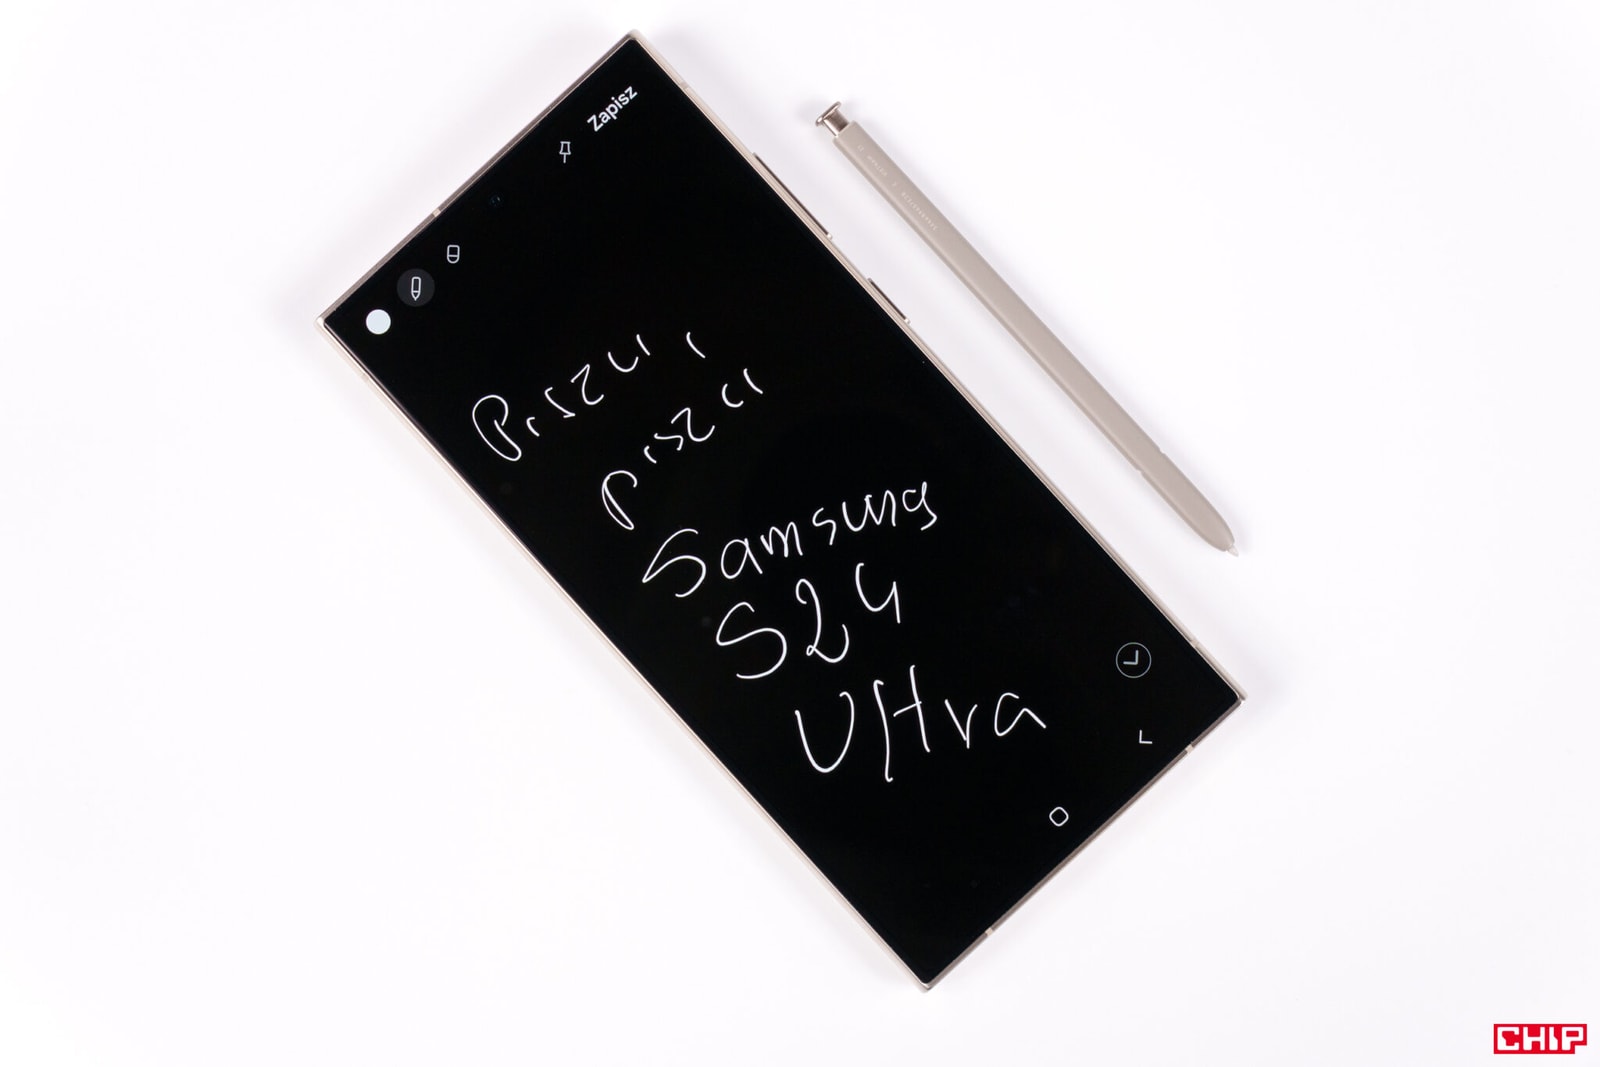 Zapisz
Piszu,
piszu
Samsung
S24
Ultra
CHIP